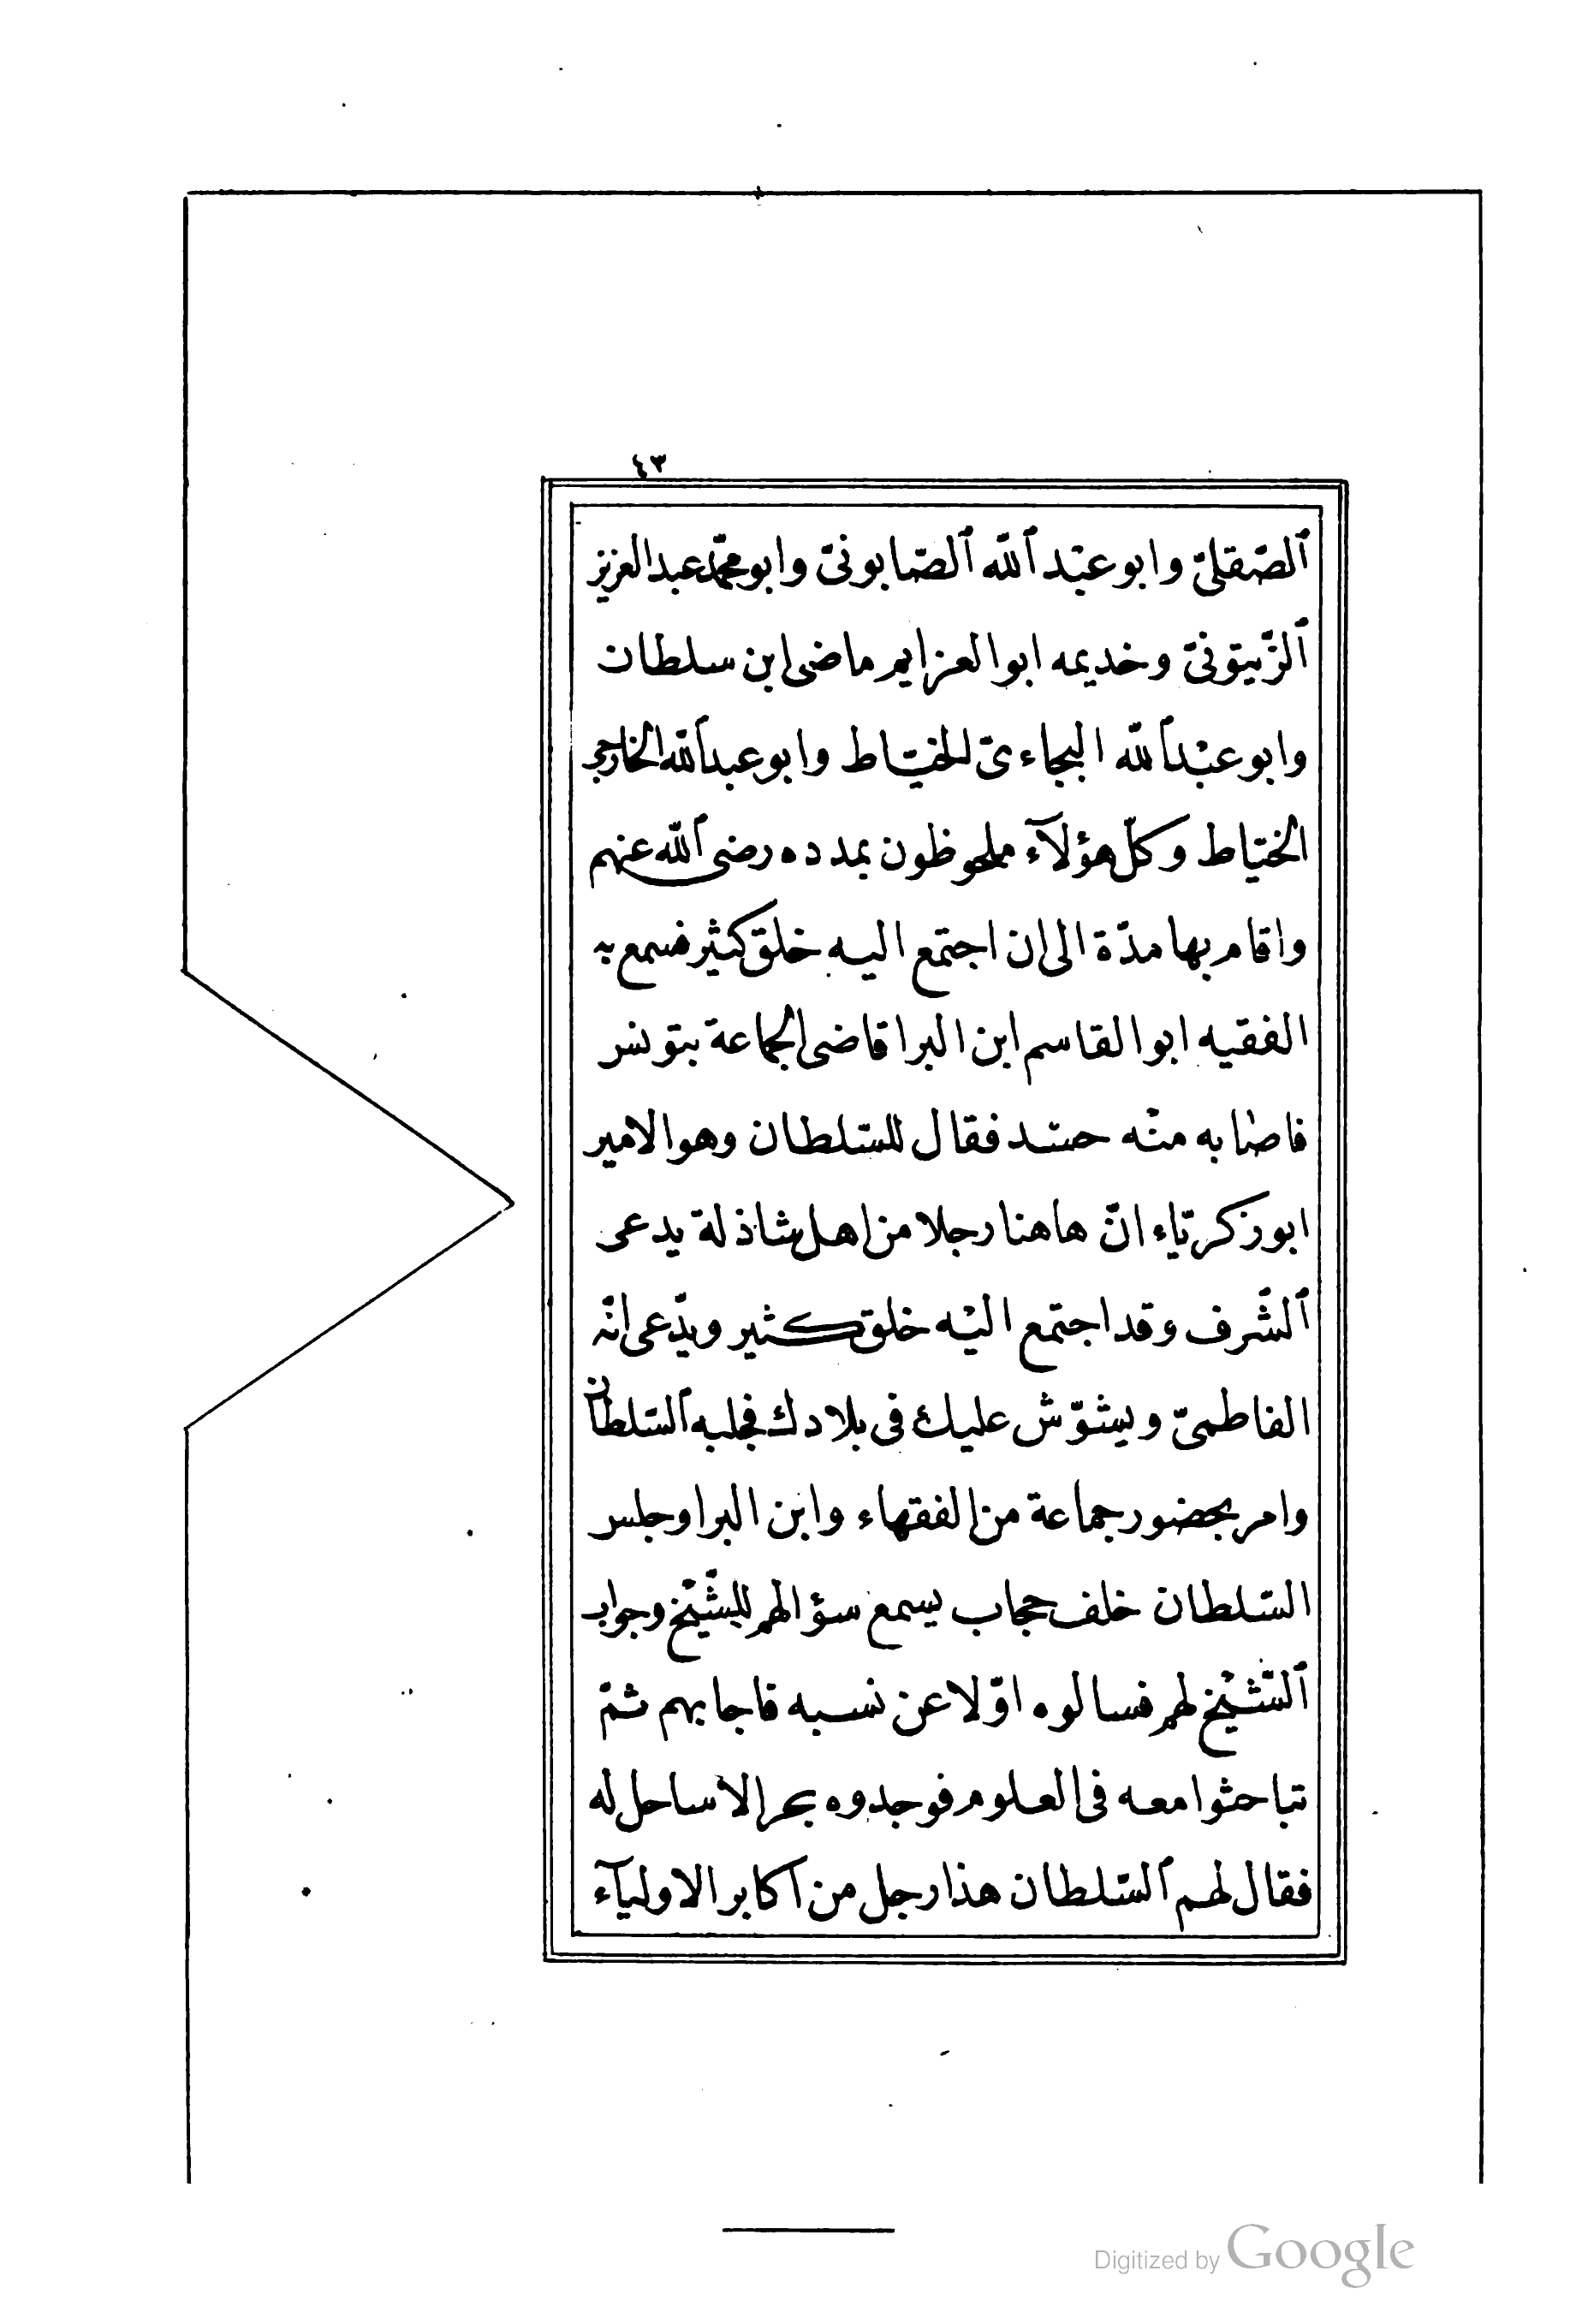 ٤٣
ٱلصّقلىّ وابو عبْد ٱللّه ٱلصّابونىّ وابو محمّد عبد العزيز
ٱلزّيتونىّ وخديمه ابوا لعزايم ماضى ابن سلطان
وابو عبْد ٱللّه البجاءىّ الخيّاط وابو عبد ٱللّه الخارجى
الخيّاط وكلّ هؤلآء ملحوظون بمدده رضى ٱللّه عنهم
واقام بها مدّة الى ان اجتمع اليه خلق كثير فسمع به
الفقيه ابوا لقاسم ابن البرا قاضى الجماعة بتونس
فاصابه منْه حسد فقال للسّلطان وهو الامير
ابو زكريّاء انّ هاهنا رجلا من اهل شاذلة يدعى
ٱلشّرف وقد اجتمع اليْه خلق كثير ويدّعى انّه
الفاطمىّ ويشوّش عليك فى بلادك فجلبه ٱلسّلطان
وامر بحضور جماعة من الفقهاء وابن البرا وجلس
السّلطان خلف حجاب يسمع سؤالهم للشّيْخ وجواب
ٱلشّيْخ لهم فسالوه اوّلا عن نسبه فاجابهم ثمّ
تباحثوا معه فى العلوم فوجدوه بحرا لا ساحل له
فقال لهم ٱلسّلطان هذا رجل من اكابر الاوليآء
Digitized by Google